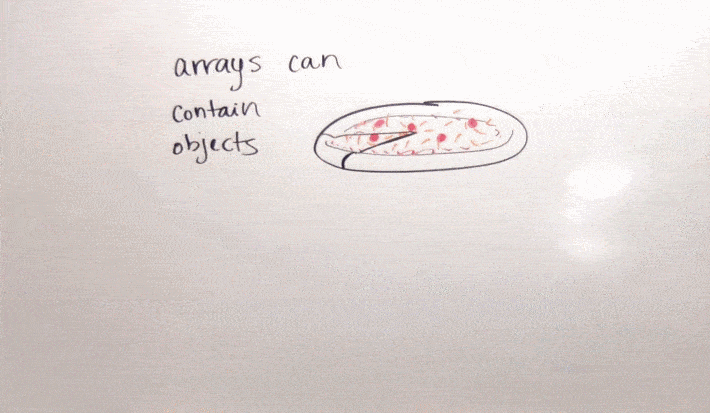 arrays can
contain
objects